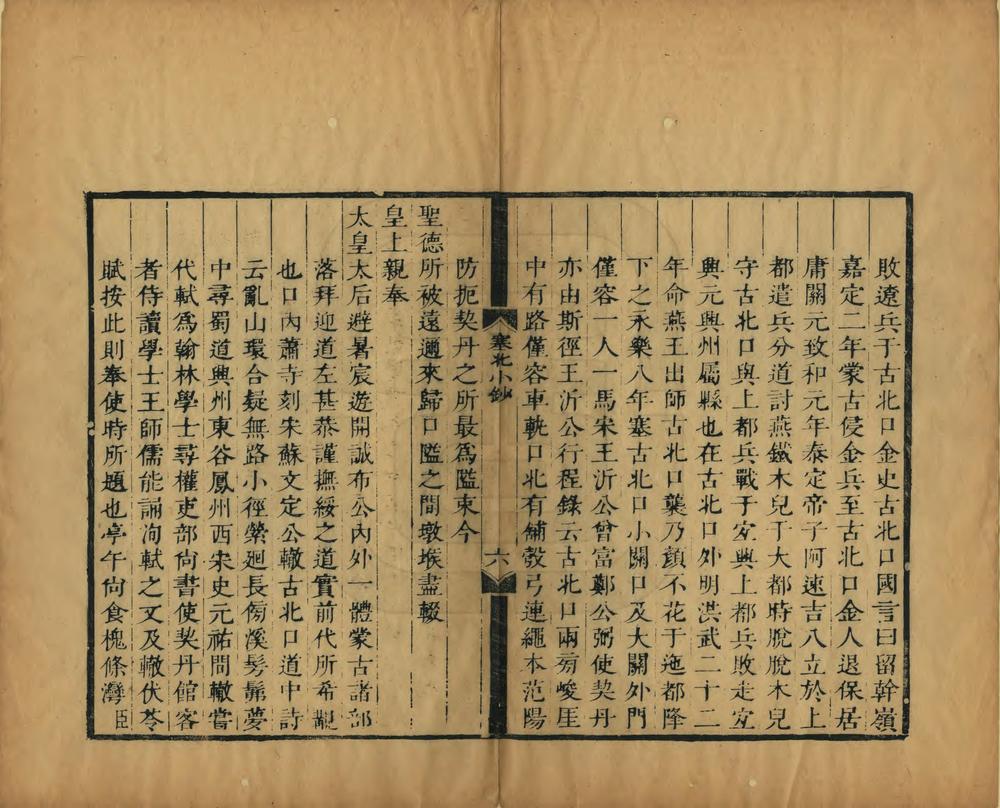 敗遼兵于古北口金史古北口國言曰留斡嶺
嘉定二年蒙古侵金兵至古北口金人退保居
庸關元致和元年泰定帝子阿速吉八立於上
都遣兵分道討燕鐵木兒于大都時脫脫木兒
守古北口與上都兵戰于宜興上都兵敗走宜
興元興州屬縣也在古北口外明洪武二十二
年命燕王出師古北口襲乃顏不花于迤都降
下之永樂八年塞古北口小關口及大關外門
僅容一人一馬宋王沂公曾富鄭公弼使契丹
亦由斯徑王沂公行程錄云古北口兩旁峻厓
中有路僅容車軌口北有舖彀弓連繩本范陽
塞北小鈔
六
防扼契丹之所最爲隘束今
聖德所被遠邇來歸口隘之間墩堠盡輟
皇上親奉
太皇太后避暑宸遊開誠布公內外一體蒙古諸部
落拜迎道左甚恭謹撫綏之道實前代所希覯
也口內蕭寺刻宋蘇文定公轍古北口道中詩
云亂山環合疑無路小徑縈廻長傍溪髣髴夢
中尋蜀道興州東谷鳳州西宋史元祐間轍嘗
代軾爲翰林學士尋權吏部尙書使契丹館客
者侍讀學士王師儒能誦洵軾之文及轍伏苓
賦按此則奉使時所題也亭午尙食槐條灣臣